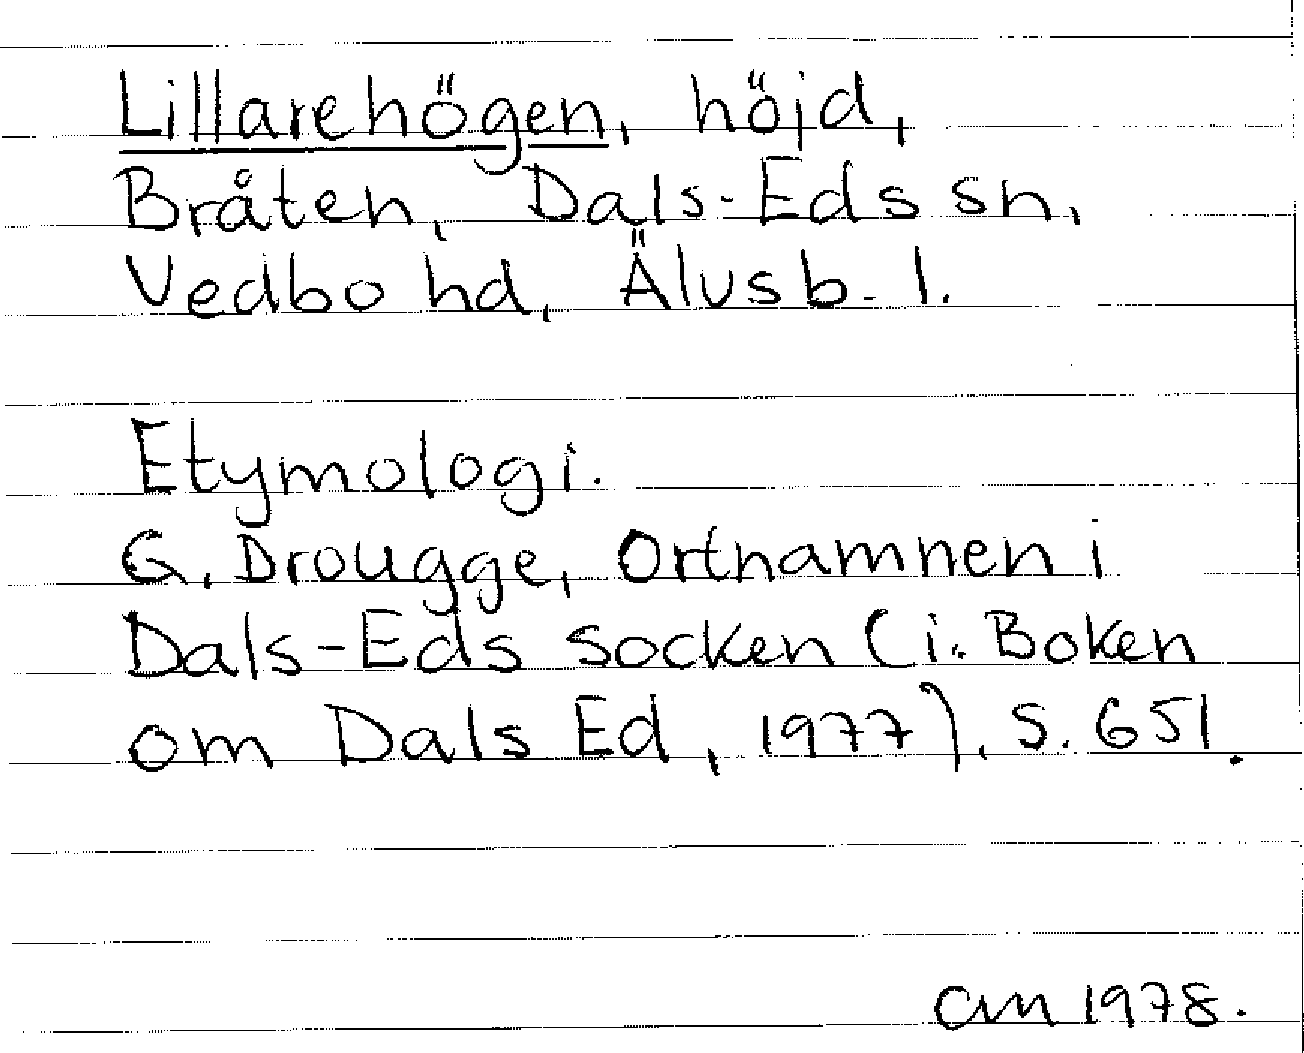 Lillarehögen, höjd,
Bråten, Dals-Eds sn,
Vedbo hd, Älvsb. l.
Etymologi.
G. Drougge, Ortnamnen i
Dals-Eds socken (i: Boken
om Dals Ed, 1977), s. 651.
am 1978.